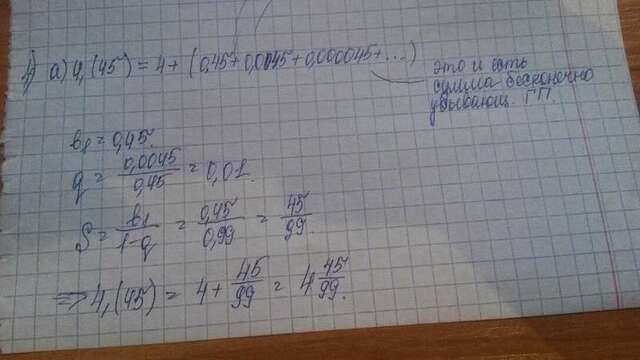 1) а) 4,(45) = 4 + (0,45 + 0,0045 + 0,000045 + ...)
это и есть
сумма бесконечно
убывающ. ГП.
b₁ = 0,45.
q = 0,0045/0,45 = 0,01.
S = b₁/(1-q) = 0,45/0,99 = 45/99.
=> 4,(45) = 4 + 45/99 = 4 45/99.